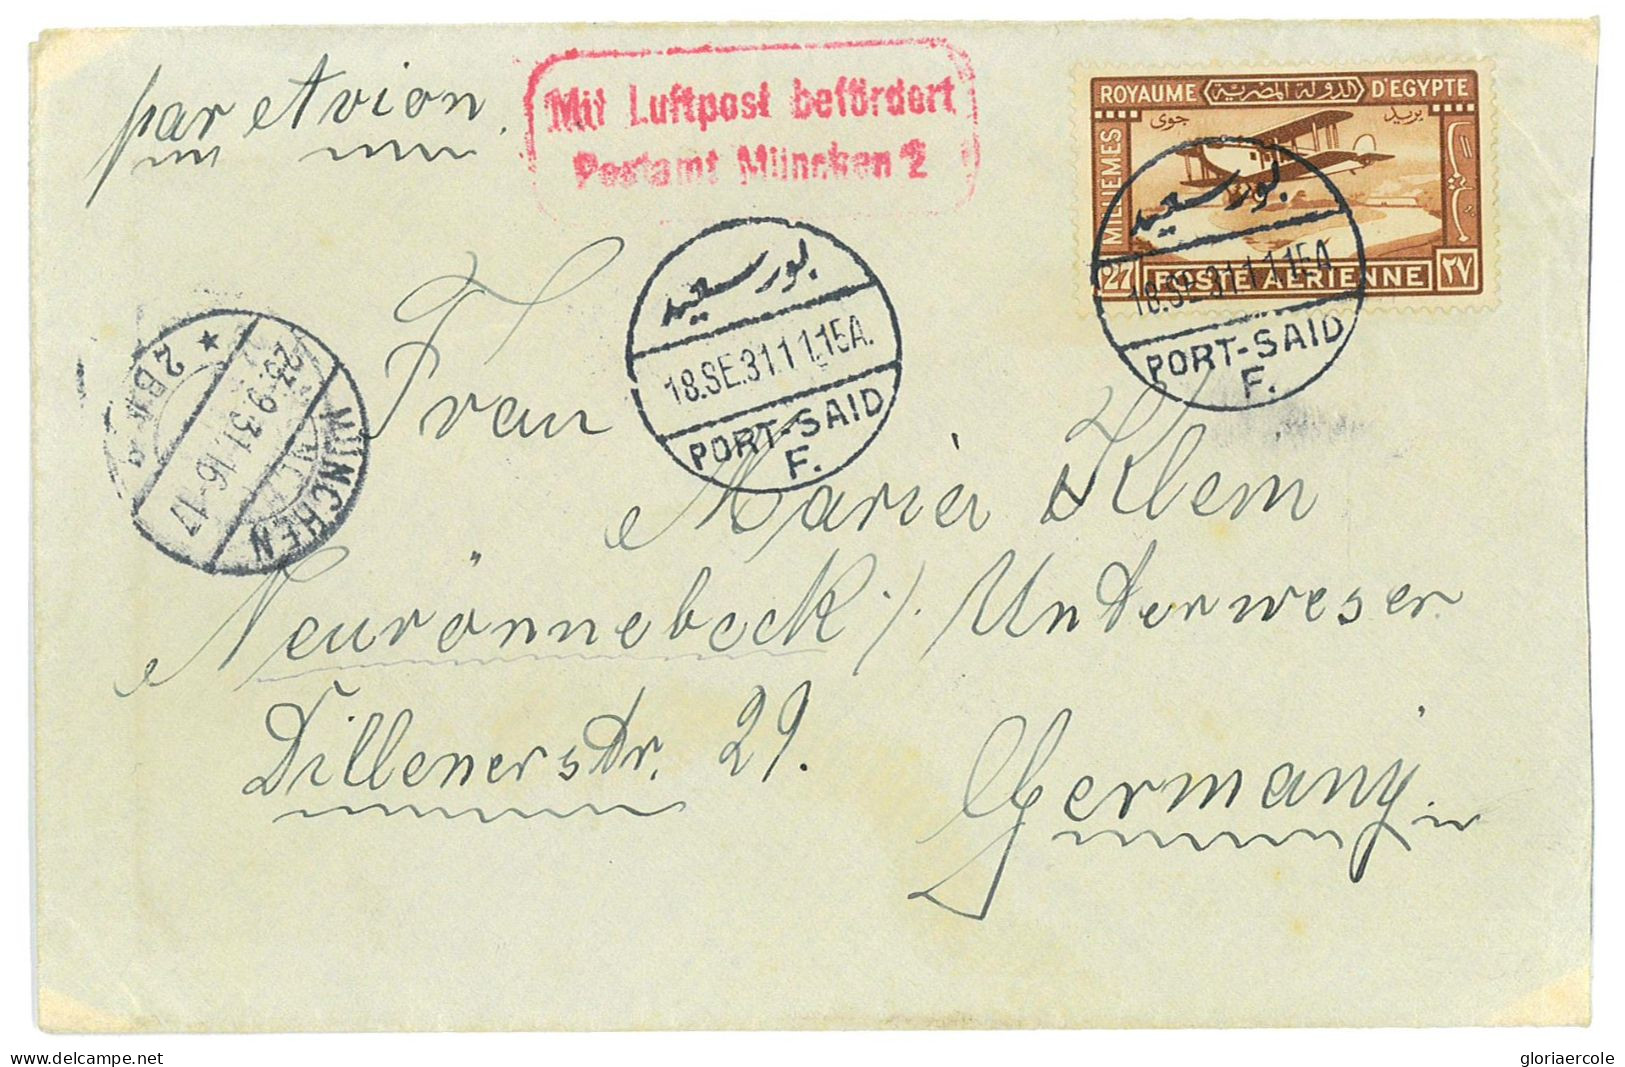 par Avion.
Mit Luftpost befördert
Postamt München 2
ROYAUME الدولة المصرية D'EGYPTE
بريد جوى
MILLIEMES
27 POSTE AÉRIENNE ٢٧
بور سعيد
18.SE.31 11.15A
PORT-SAID
F.
بور سعيد
18.SE.31 11.15A.
PORT-SAID
F.
MÜNCHEN
9.31.16-17
* 2 B
Frau
Maria Klem
Neurönnebeck / Underweser
Dillenerstr. 29.
Germany.
gloriaercole